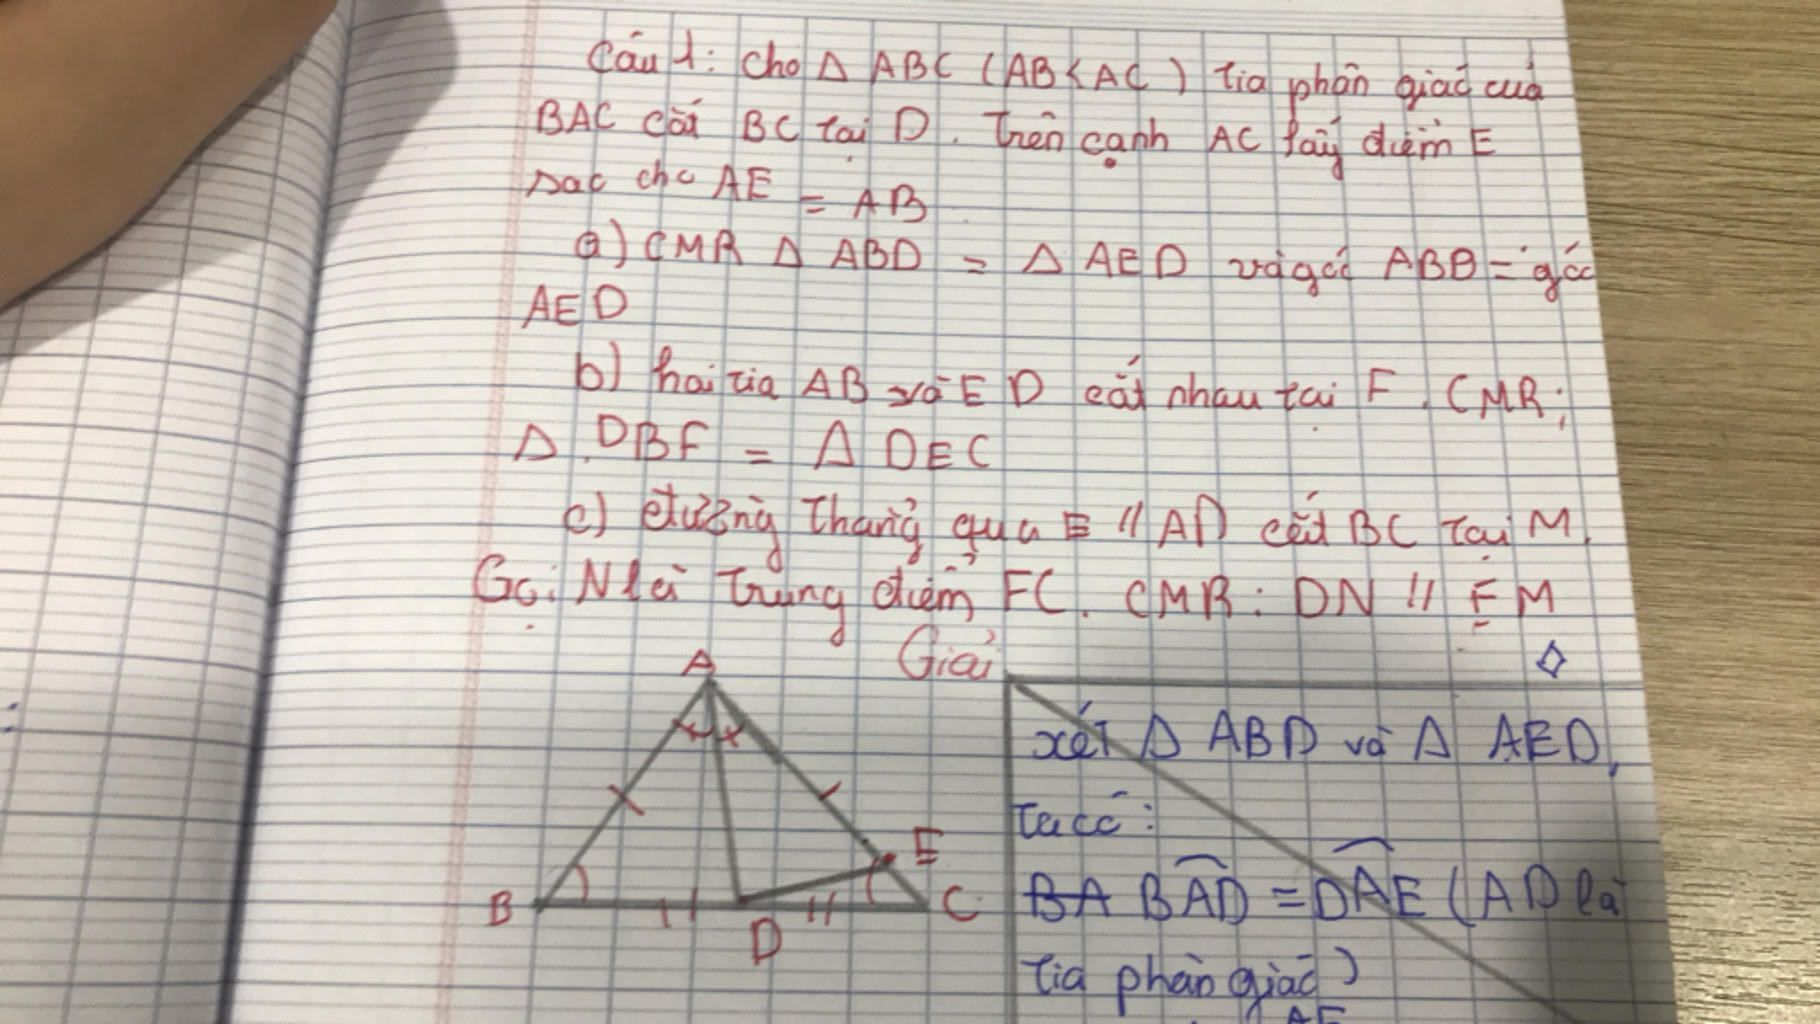 Câu 1: Cho Δ ABC (AB < AC) tia phân giác của
BAC cắt BC tại D. Trên cạnh AC lấy điểm E
sao cho AE = AB
a) CMR Δ ABD = Δ AED và góc ABB = góc
AED
b) hai tia AB và ED cắt nhau tại F. CMR:
Δ DBF = Δ DEC
c) Đường thẳng qua E // AD cắt BC tại M.
Gọi N là trung điểm FC. CMR: DN // EM
Giải
A
B
D
E
C
xét Δ ABD và Δ AED,
ta có:
BA BAD = DAE (AD là
tia phân giác)
AE